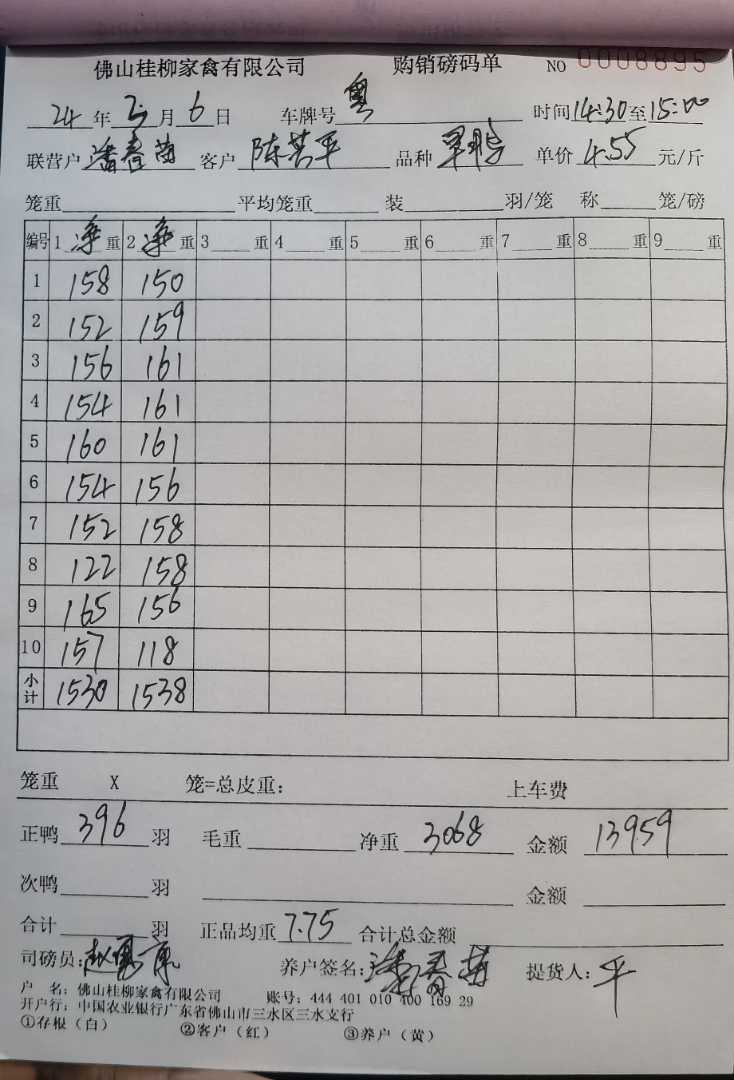 佛山桂柳家禽有限公司 购销磅码单 NO 0008895
24年 月6日 车牌号 粤 时间14:30至15:00
联营户 潘春苗 客户 陈其平 品种 单价 4.55 元/斤
笼重 平均笼重 装 羽/笼 称 笼/磅
编号 1 净 重 2 净 重 3 重 4 重 5 重 6 重 7 重 8 重 9 重
1 158 150
2 152 159
3 156 161
4 154 161
5 160 161
6 154 156
7 152 158
8 122 158
9 165 156
10 157 118
小计 1530 1538
笼重 X 笼=总皮重: 上车费
正鸭 396 羽 毛重 净重 3068 金额 13959
次鸭 羽 金额
合计 羽 正品均重 7.75 合计总金额
司磅员: 养户签名: 潘春苗 提货人: 平
户 名: 佛山桂柳家禽有限公司 账号: 444 401 010 400 169 29
开户行: 中国农业银行广东省佛山市三水区三水支行
①存根(白) ②客户(红) ③养户(黄)